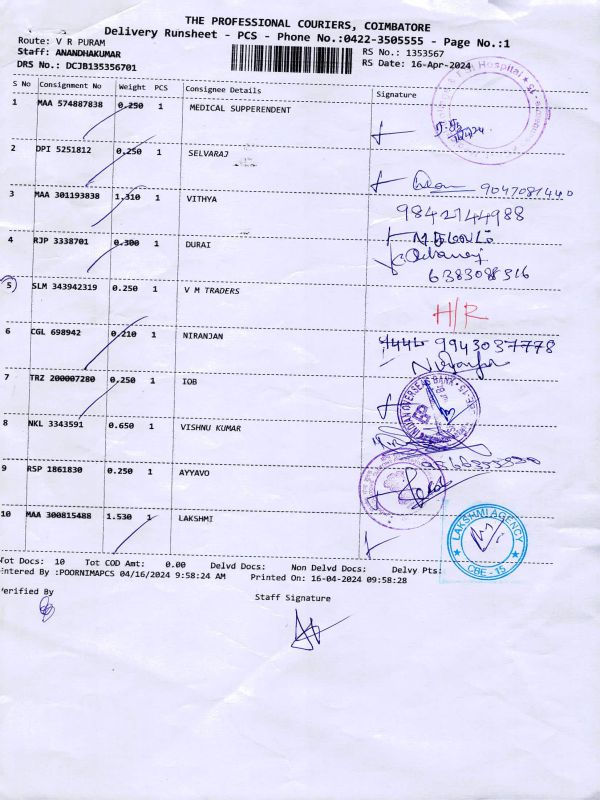 THE PROFESSIONAL COURIERS, COIMBATORE
Delivery Runsheet - PCS - Phone No.:0422-3505555 - Page No.:1
Route: V R PURAM
RS No.: 1353567
Staff: ANANDHAKUMAR
RS Date: 16-Apr-2024
DRS No.: DCJB135356701
S No Consignment No Weight PCS Consignee Details Signature
1 MAA 574887838 0.250 1 MEDICAL SUPPERENDENT
Hospital
2 DPI 5251812 0.250 1 SELVARAJ
9047087440
3 MAA 301193838 1.310 1 VITHYA
9842744988
4 RJP 3338701 0.300 1 DURAI
6383088316
5 SLM 343942319 0.250 1 V M TRADERS
H/R
6 CGL 698942 0.210 1 NIRANJAN
9943037778
7 TRZ 200007280 0.250 1 IOB
INDIAN OVERSEAS BANK
8 NKL 3343591 0.650 1 VISHNU KUMAR
9 RSP 1861830 0.250 1 AYYAVO
10 MAA 300815488 1.530 1 LAKSHMI
LAKSHMI AGENCY
CBE - 15
Tot Docs: 10 Tot COD Amt: 0.00 Delvd Docs: Non Delvd Docs: Delvy Pts:
Entered By :POORNIMAPCS 04/16/2024 9:58:24 AM Printed On: 16-04-2024 09:58:28
Verified By
Staff Signature